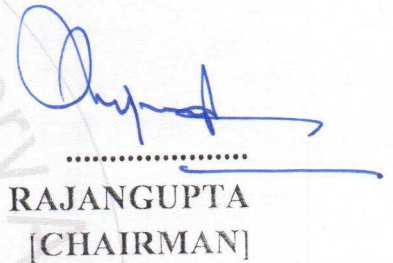 ....................
RAJANGUPTA
[CHAIRMAN]